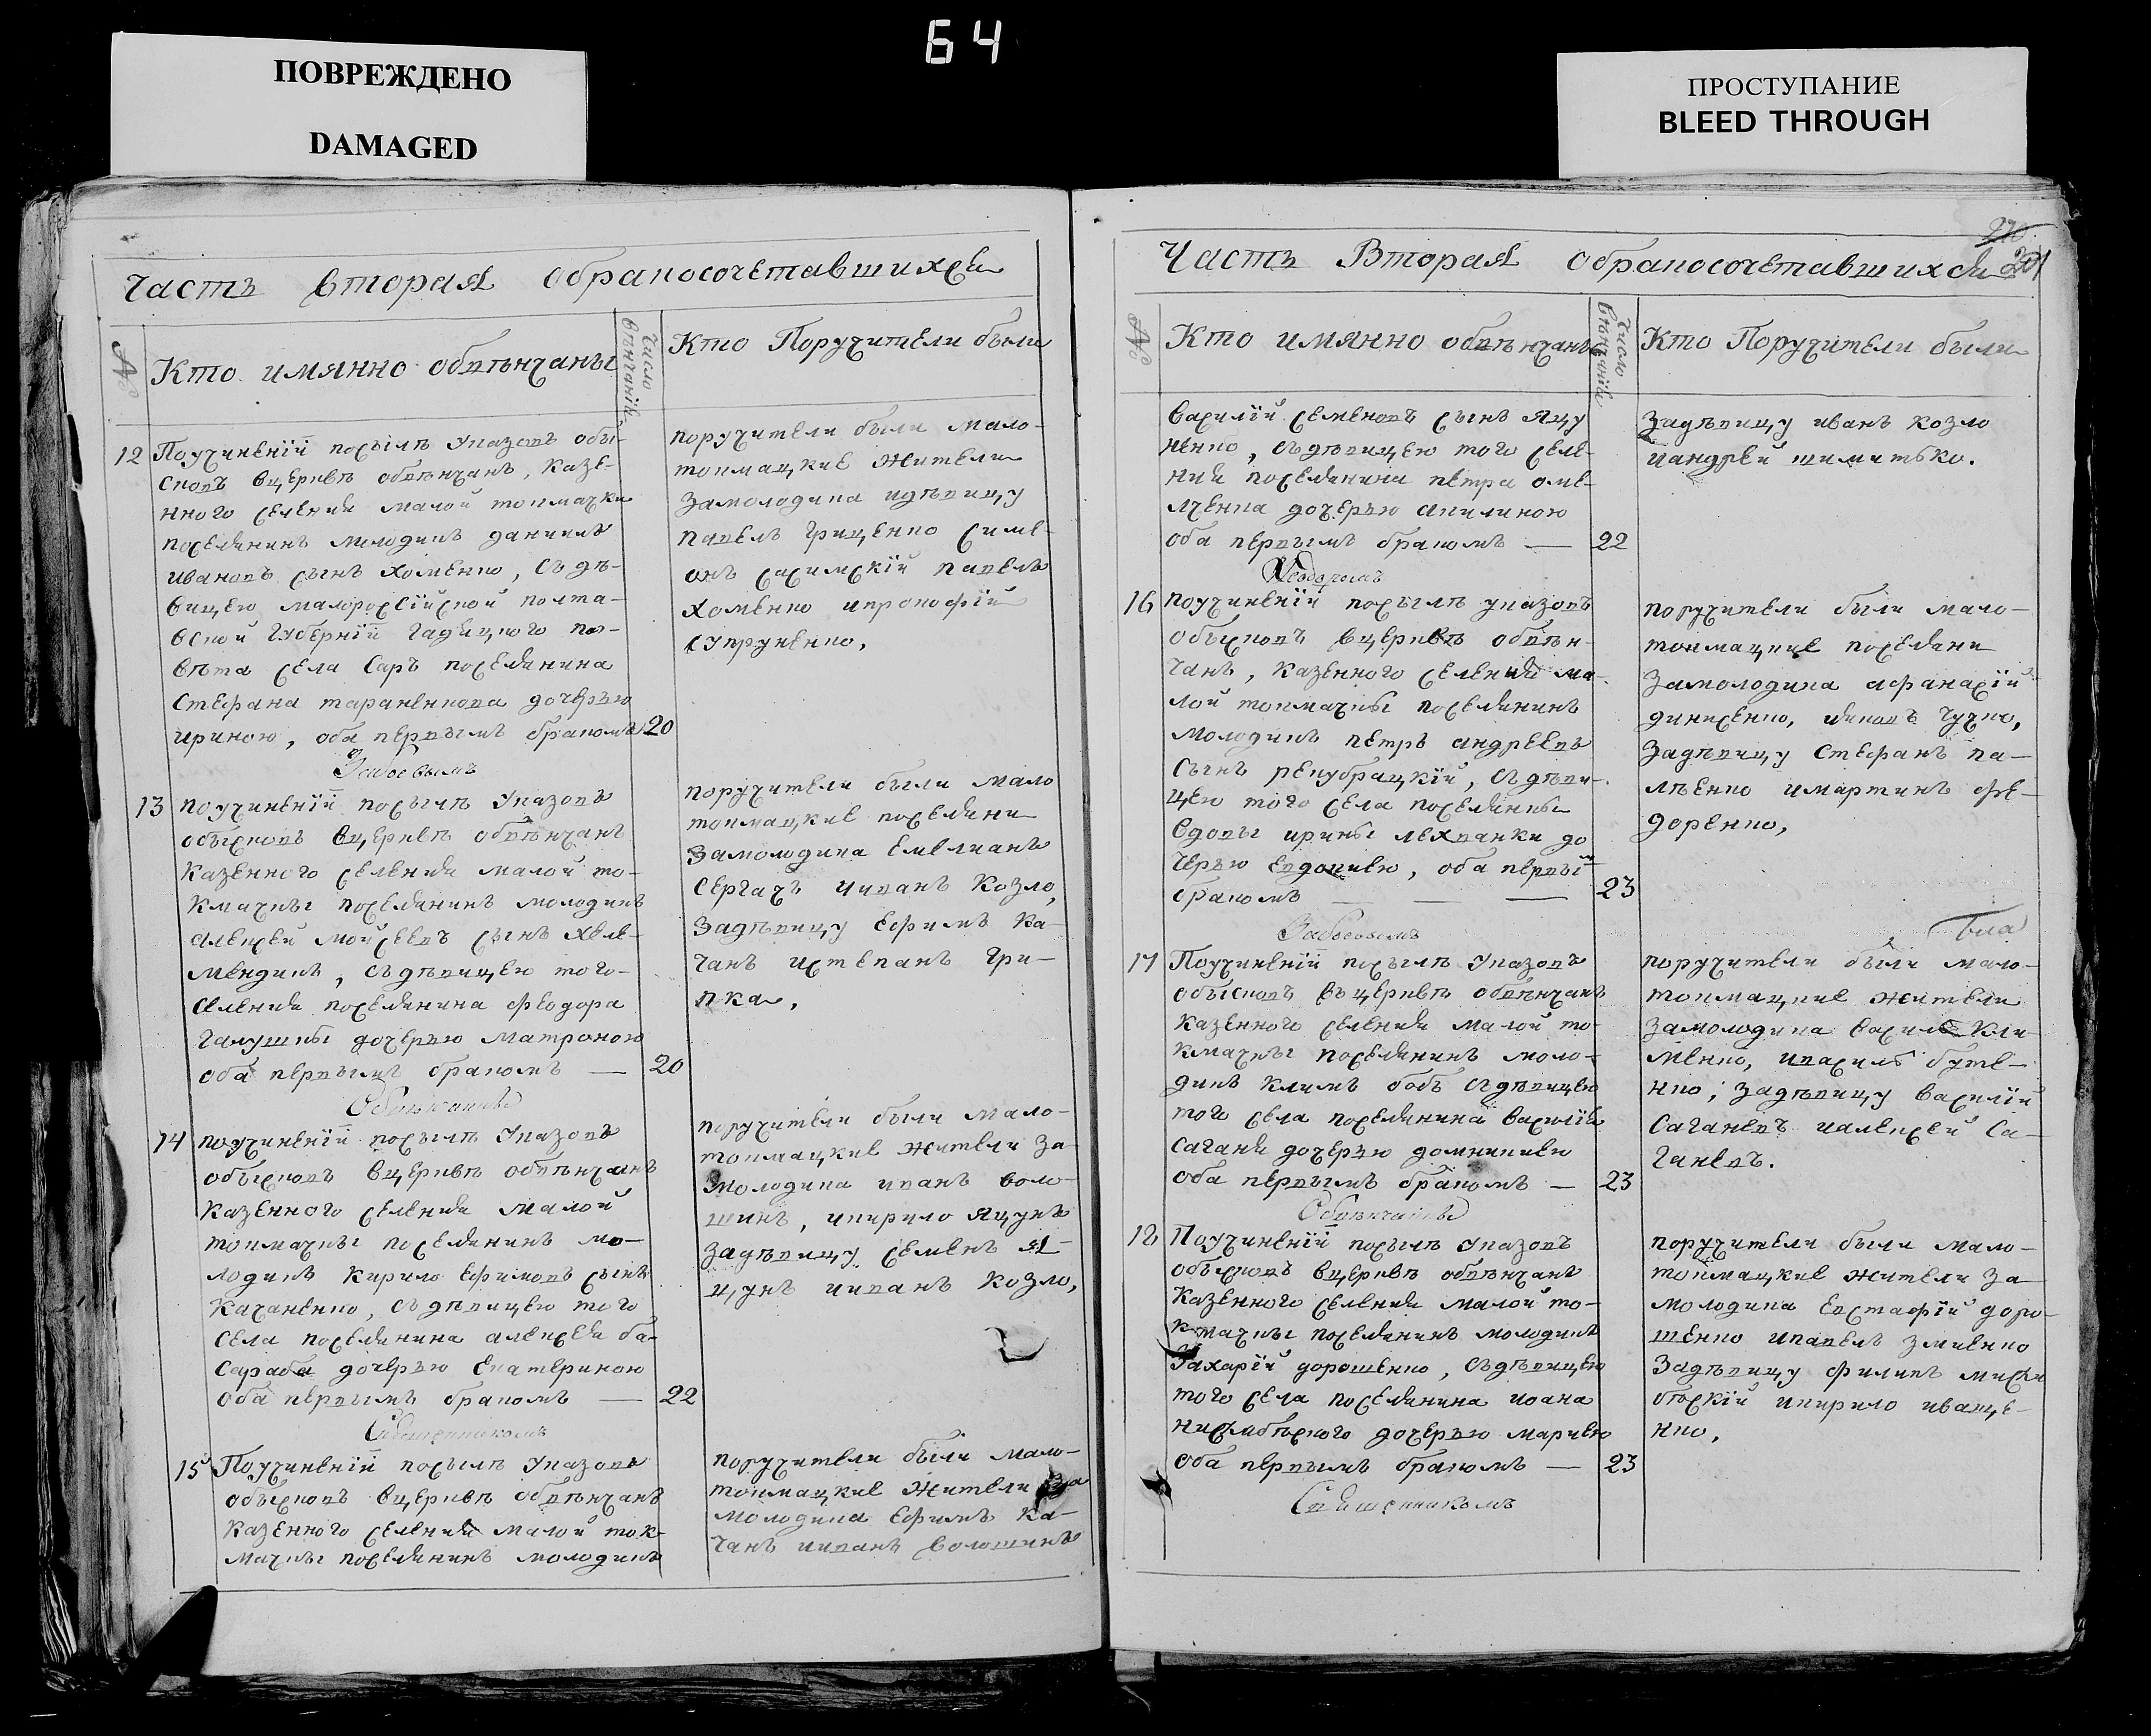 64
ПОВРЕЖДЕНО
DAMAGED
ПРОСТУПАНИЕ
BLEED THROUGH
Часть вторая обракосочетавшихся
№
Кто имянно обвѣнчаны
число вѣнчанія
Кто Поручители были
12
Поучиненіи посылѣ Указовъ обы-
сковъ вцерквѣ обвѣнчанъ, Казе-
нного селения малой токмачки
поселянинъ молодикъ даниилъ
ивановъ сынъ хоменко, съ дѣ-
вицею малороссійской полта-
вской Губерніи Гадяцкого по-
вѣта села Саръ поселянина
Стефана тараненкова дочерью
ириною, оба первымъ бракомъ
20
поручители были мало-
токмацкие жители
замолодика идѣвицу
павелъ гриценко симе-
онъ сахимский павелъ
хоменко ипрокофій
супруненко,
13
поучиненіи посылѣ Указовъ
обысковъ вцерквѣ обвѣнчанъ
казенного селения малой то-
кмачки поселянинъ молодикъ
алексей мойсеевъ сынъ хеле-
мендикъ, съ дѣвицею того-
селения поселянина феодора
галушки дочерью матроною
оба первымъ бракомъ —
20
поручители были мало
токмацкие поселяни
замолодика емелианъ
Сергачъ иивапъ козло,
задѣвицу ефимъ ка-
чанъ истепанъ гри-
пка,
14
поучиненіи посылѣ Указовъ
обысковъ вцерквѣ обвѣнчанъ
казенного селения малой
токмачки поселянинъ мо-
лодикъ кирило ефимовъ сынъ
качаненко, съ дѣвицею того
села поселянина алексея ба-
сараба дочерью екатериною
оба первымъ бракомъ —
22
поручители были мало-
токмацкие жители за
молодика иванъ воло-
шинъ, икирило яцунъ
задѣвицу семенъ я-
цунъ ииванъ козло,
Священникомъ
15
Поучиненіи посылѣ Указовъ
обысковъ вцерквѣ обвѣнчанъ
казенного селения малой ток-
мачки поселянинъ молодикъ
поручители были мало-
токмацкие жители за
молодика ефимъ ка-
чанъ ииванъ волошинъ
Часть Вторая обракосочетавшихся
№
Кто имянно обвѣнчаны
число вѣнчанія
Кто Поручители были
василій семеновъ сынъ яцу
ненко, съ дѣвицею того селе-
ния поселянина петра оме-
лченка дочерью акилиною
оба первымъ бракомъ —
22
задѣвицу иванъ козло
иандрей шимитько.
16
поучиненіи посылѣ указовъ
обысковъ вцерквѣ обвѣн-
чанъ, казенного селения ма-
лой токмачки поселянинъ
молодикъ петръ андреевъ
сынъ рекубрацкій, съ дѣви-
цею того села поселянки
вдовы ирины лехванки до
черью евдокиею, оба первы
бракомъ — — —
23
поручители были мало-
токмацкие поселяни
замолодика афанасій
динисенко, иковъ чучко,
задѣвицу стефанъ па-
лѣенко имартинъ фе-
доренко,
17
Поучиненіи посылѣ Указовъ
обысковъ въ церквѣ обвѣнчанъ
казенного селения малой то-
кмачки поселянинъ моло-
дикъ климъ бобъ съ дѣвицею
того села поселянина василія
сагана дочерью домникиею
оба первымъ бракомъ —
23
поручители были мало-
токмацкие жители
замолодика василь кли-
менко, ивасиль буте-
нко; задѣвицу василій
саганевъ иалексей са-
ганевъ.
Обвѣнчаны
18
Поучиненіи посылѣ Указовъ
обысковъ вцерквѣ обвѣнчанъ
казенного селения малой то-
кмачки поселянинъ молодикъ
Захарій дорошенко, съ дѣвицею
того села поселянина иоана
дочерью мариею
оба первымъ бракомъ —
23
поручители были мало-
токмацкие жители за
молодика евстафій доро-
шенко ипавелъ змиенко
задѣвицу филипъ
икирило иваще-
нко,
Священникомъ